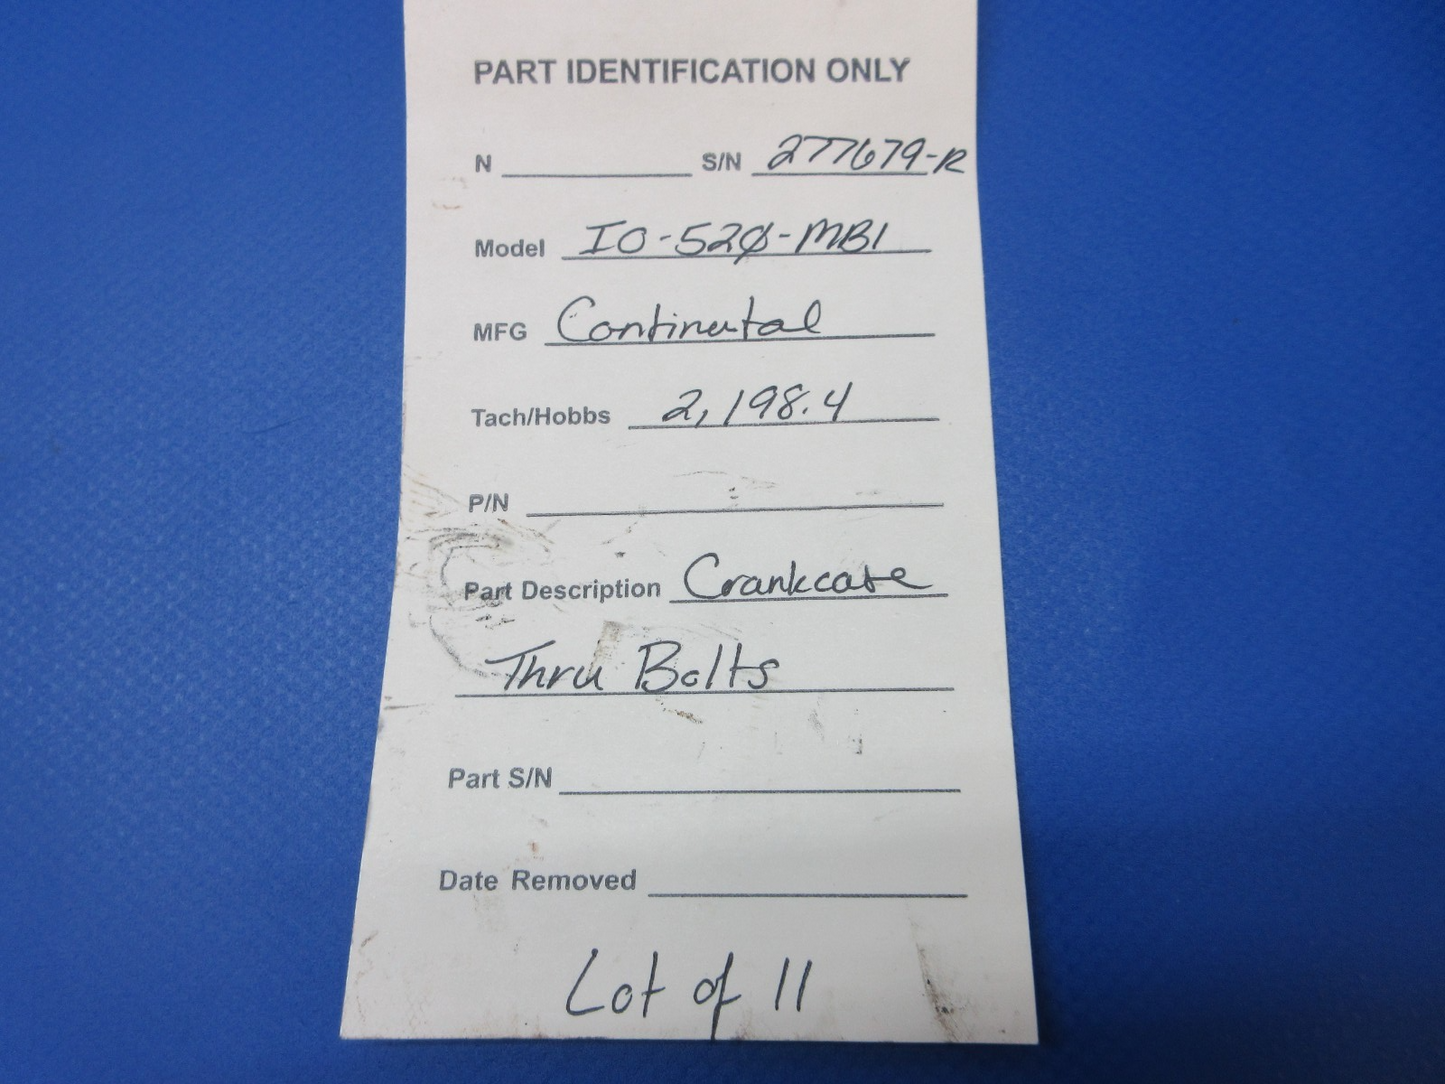 PART IDENTIFICATION ONLY
N S/N 277679-R
Model IO-520-MB1
MFG Continental
Tach/Hobbs 2,198.4
P/N
Part Description Crankcase
Thru Bolts
Part S/N
Date Removed
Lot of 11